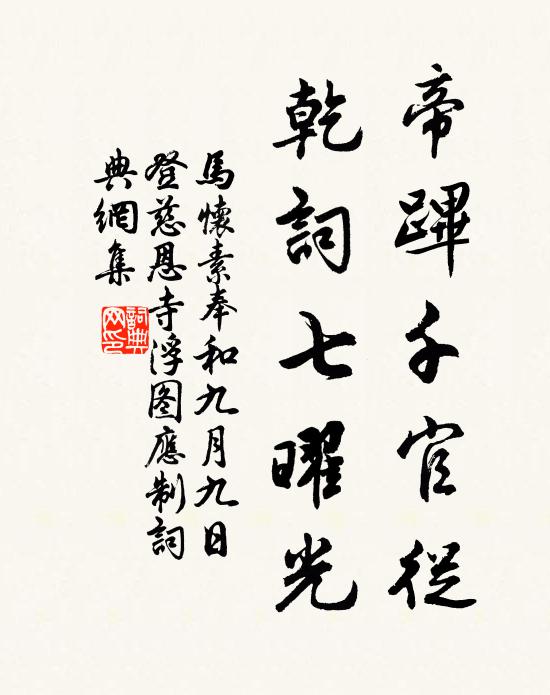 帝蹕千官從
乾詞七曜光
馬懷素奉和九月九日
登慈恩寺浮图應制詞
典網集
詞典网印